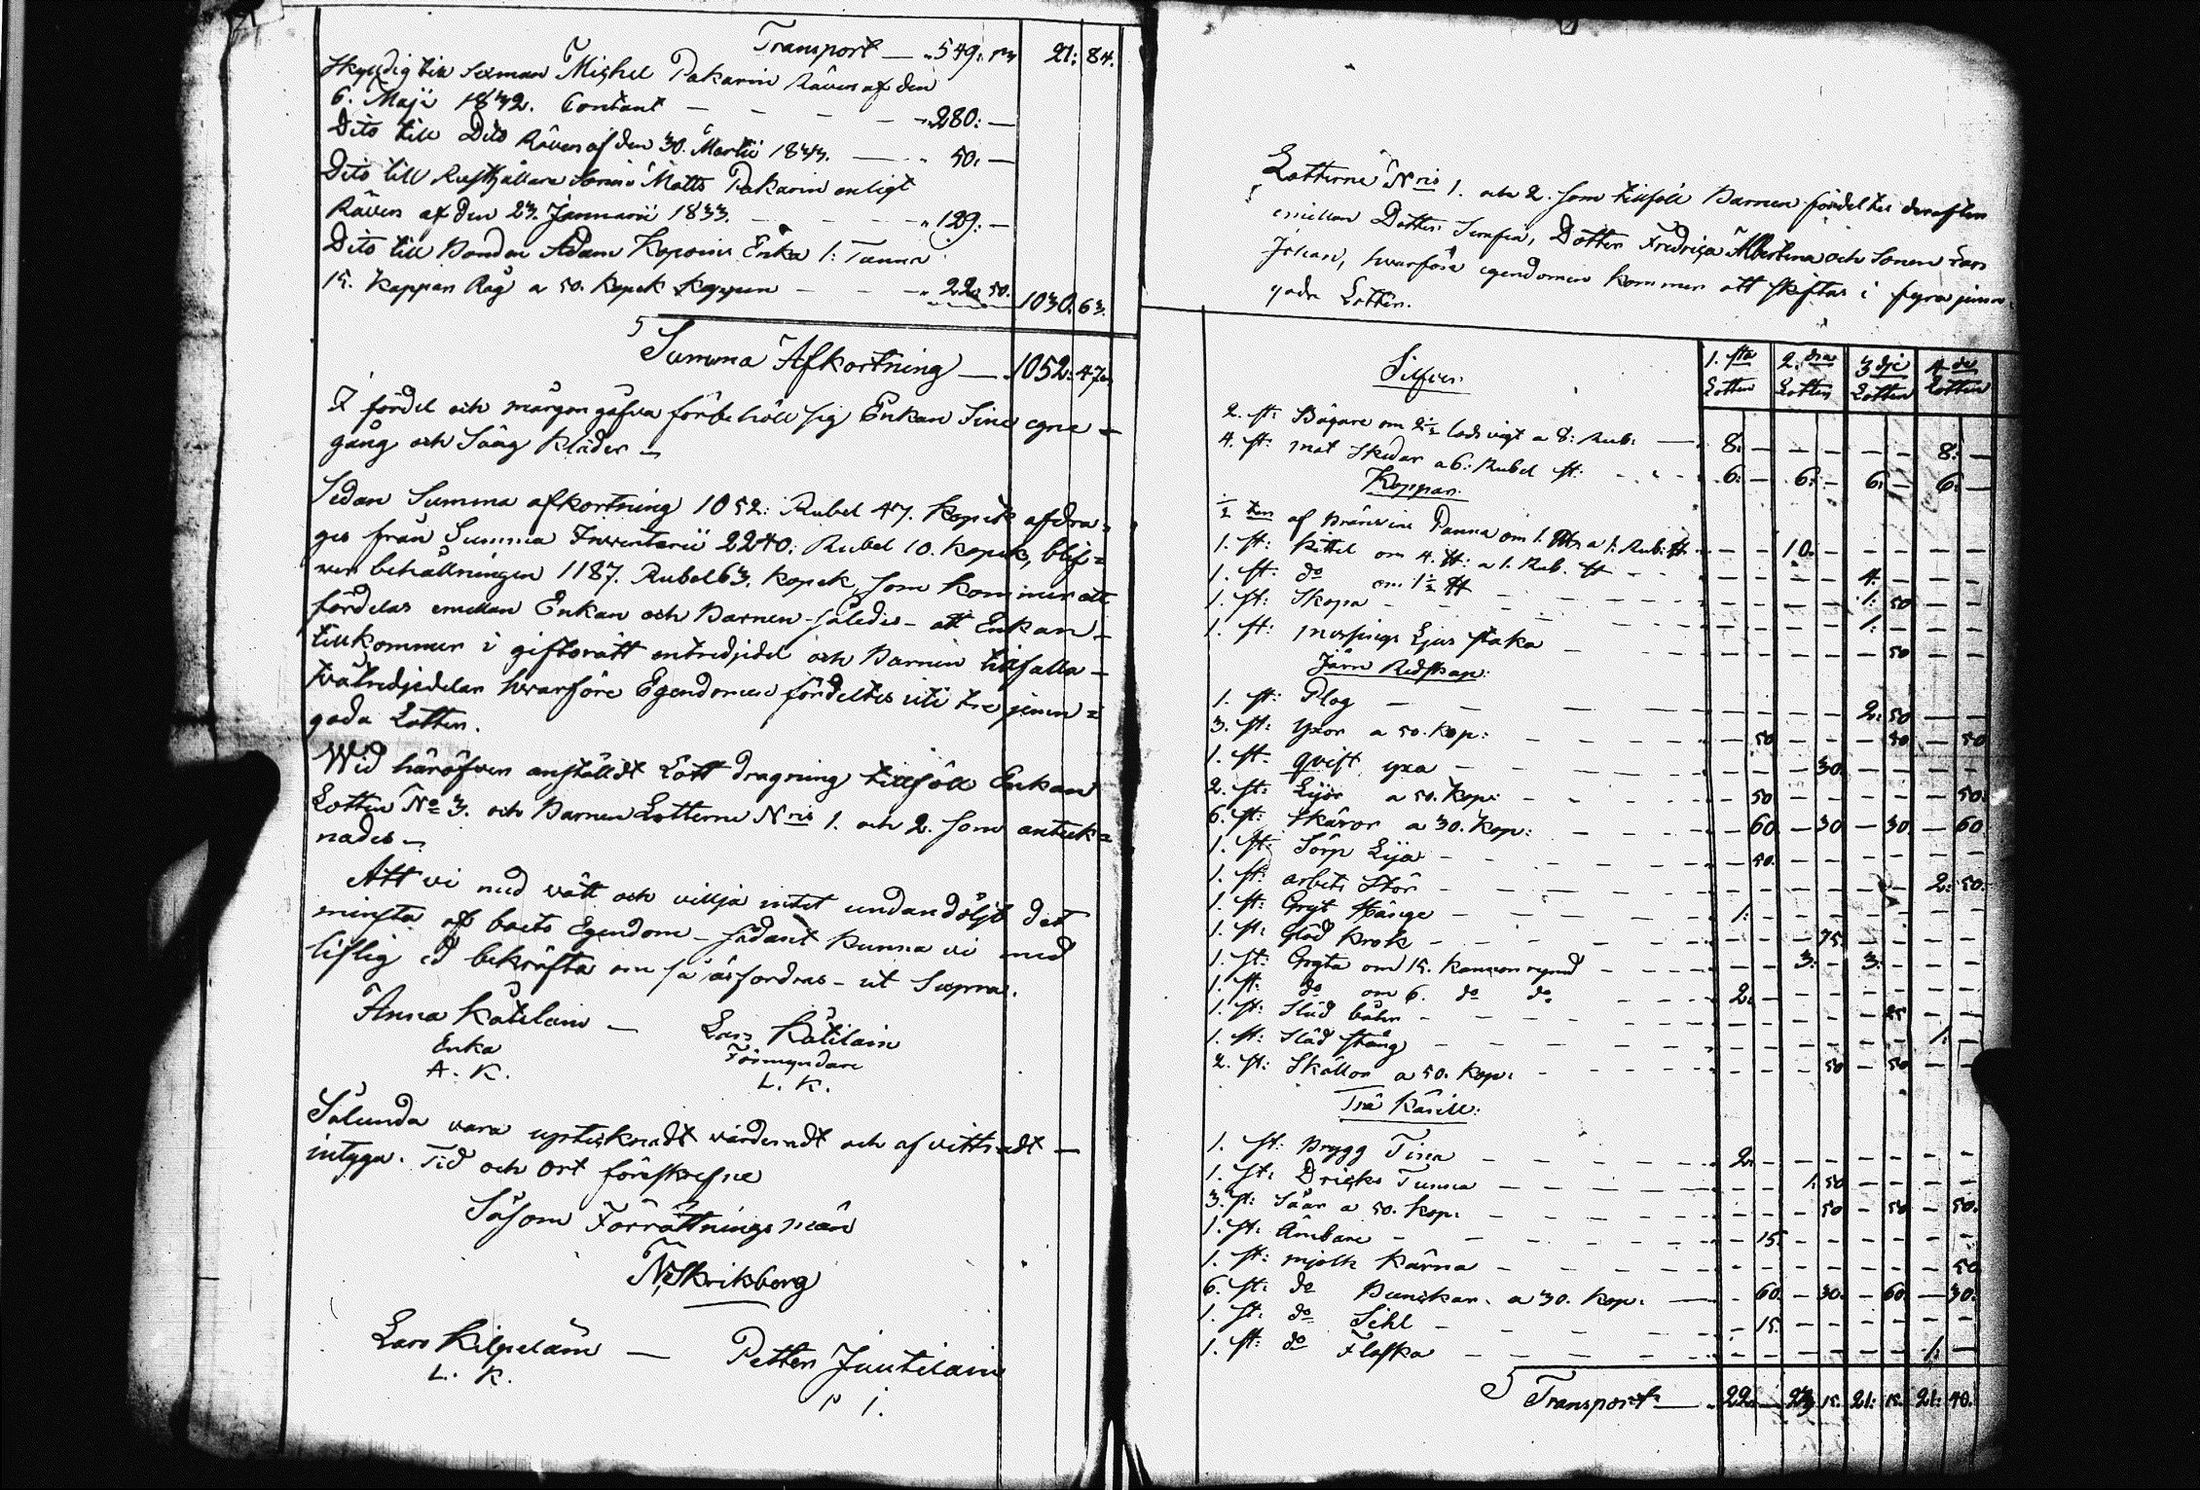 Transport — „ 549: 13 21: 84.
Skyldig till Sexman Michel Pakarin Räven af den
6. Maji 1832. Contant — — — — „ 280: —
Dito till Dito Räven af den 30. Martii 1833. — „ 50: —
Dito till Matts Pakarin enligt
Räven af den 23. Januarii 1833. — — — „ 129: —
Dito till Bonden Adam Koponens Enka
15. Kappar Råg a 50. Kopek — — — „ 22: 50. 1030. 63.
Summa Afkortning — 1052: 47.
I fördel och morgongåfva förbehöll sig Enkan Sine egne
gång och Säng Kläder —
Sedan Summa afkortning 1052: Rubel 47. Kopek afdra=
ges från Summa Inventarii 2240: Rubel 10. Kopek, blif=
ver behållningen 1187. Rubel 63. Kopek, som kommer att
fördelas emellan Enkan och Barnen — således — att Enkan —
tillkommer i giftorätt entredjedel och Barnen tillfalla —
tvåtredjedelar hvarföre Egendomen fördeltes uti tre jemn=
goda Lotter.
Wid häröfver anstäldt Lott dragning tillföll Enkan
Lotten No 3. och Barnen Lotterne Nris 1. och 2. som anteck=
nades —
Att vi med vätt och vilja intet undandöljt det
minsta af boets Egendom — sådant kunna vi med
liflig ed bekräfta om så äsfordras — ut Supra.
Anna Kätilain — Lars Kätilain
Enka Förmyndare
A. K. L. K.
Sålunda vara upteknadt värderadt och afvittradt —
intyga. Tid och Ort föreskrefne
Såsom Förrättningsmän
N. Skrikberg
Lars Kilpeläin — Petter Juutilain
L. K. P. J.
Lotterne Nris 1. och 2. som tillföll Barnen fördeltes derefter
emellan Dotter Serafia, Dotter Fredrica Albertina och Sonen Lars
Johan, hvarföre egendomen kommer att skiftas i fyra jemn
goda Lotter.
Silfver. 1.sta Lotten 2.dra Lotten 3dje Lotten 4.de Lotten
2. st: Bägare om 2½ lods vigt a 8: Rub: — 8: — — — — — 8: —
4. st: mat Skedar a 6: Rubel st: 6: — 6: — 6: — 6: —
Koppar.
½ ten af Bränvins Panna om 1. a 1: Rub: — — 10: — — — — —
1. st: Kittel om 4. ℔: a 1. Rub. ℔ — — — — 4: — — —
1. st: do om 1½ ℔ — — — — 1: 50 — —
1. st: Skopa — — — — 1: — — —
1. st: messings Ljus staka — — — — — 50 — —
Järn Redskap:
1. st: Plog — — — — 2: 50 — —
3. st: yxor a 50. Kop: — 50 — — — 50 — 50
1. st: qvist yxa — — — 30. — — — —
2. st: Lijor a 50. Kop: — 50 — — — — — 50.
6. st: Skäror a 30. Kop: — 60. — 30 — 30. — 60
1. st: Sörp Lija — 50. — — — — — —
1. st: arbets Stör — — — — — — 2: 50.
1. st: Gryt Hänge — 1: — — — — — — —
1. st: Glöd Krok — — — 75. — — — —
1. st: Gryta om 15. Kannors rymd — — 3: — 3: — — —
1. st: do om 6. do do 2: — — — — — — —
1. st: Släd — — — — — 25 — —
1. st: Släd stång — — — — — — 1: —
2. st: Skällor a 50. Kop: — — — 50 — 50 — —
Trä Käril:
1. st: Brygg Tina — 2: — — — — — — —
1. st: Dricks Tunna — — — 1: 50 — — — —
3. st: Såar a 50. Kop: — — — 50 — 50 — 50.
1. st: Ämbare — 15. — — — — — —
1. st: mjölk Kärna — — — — — — — 50
6. st: do Bunckar. a 30. Kop: — 60. — 30. — 60. — 30.
1. st: do Sihl — 15. — — — — — —
1. st: do Flaska — — — — — — 1: —
Transport — 22: — 23 15. 21: 15. 21: 40.